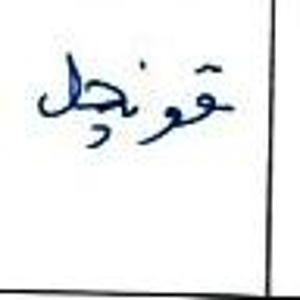 قونچل